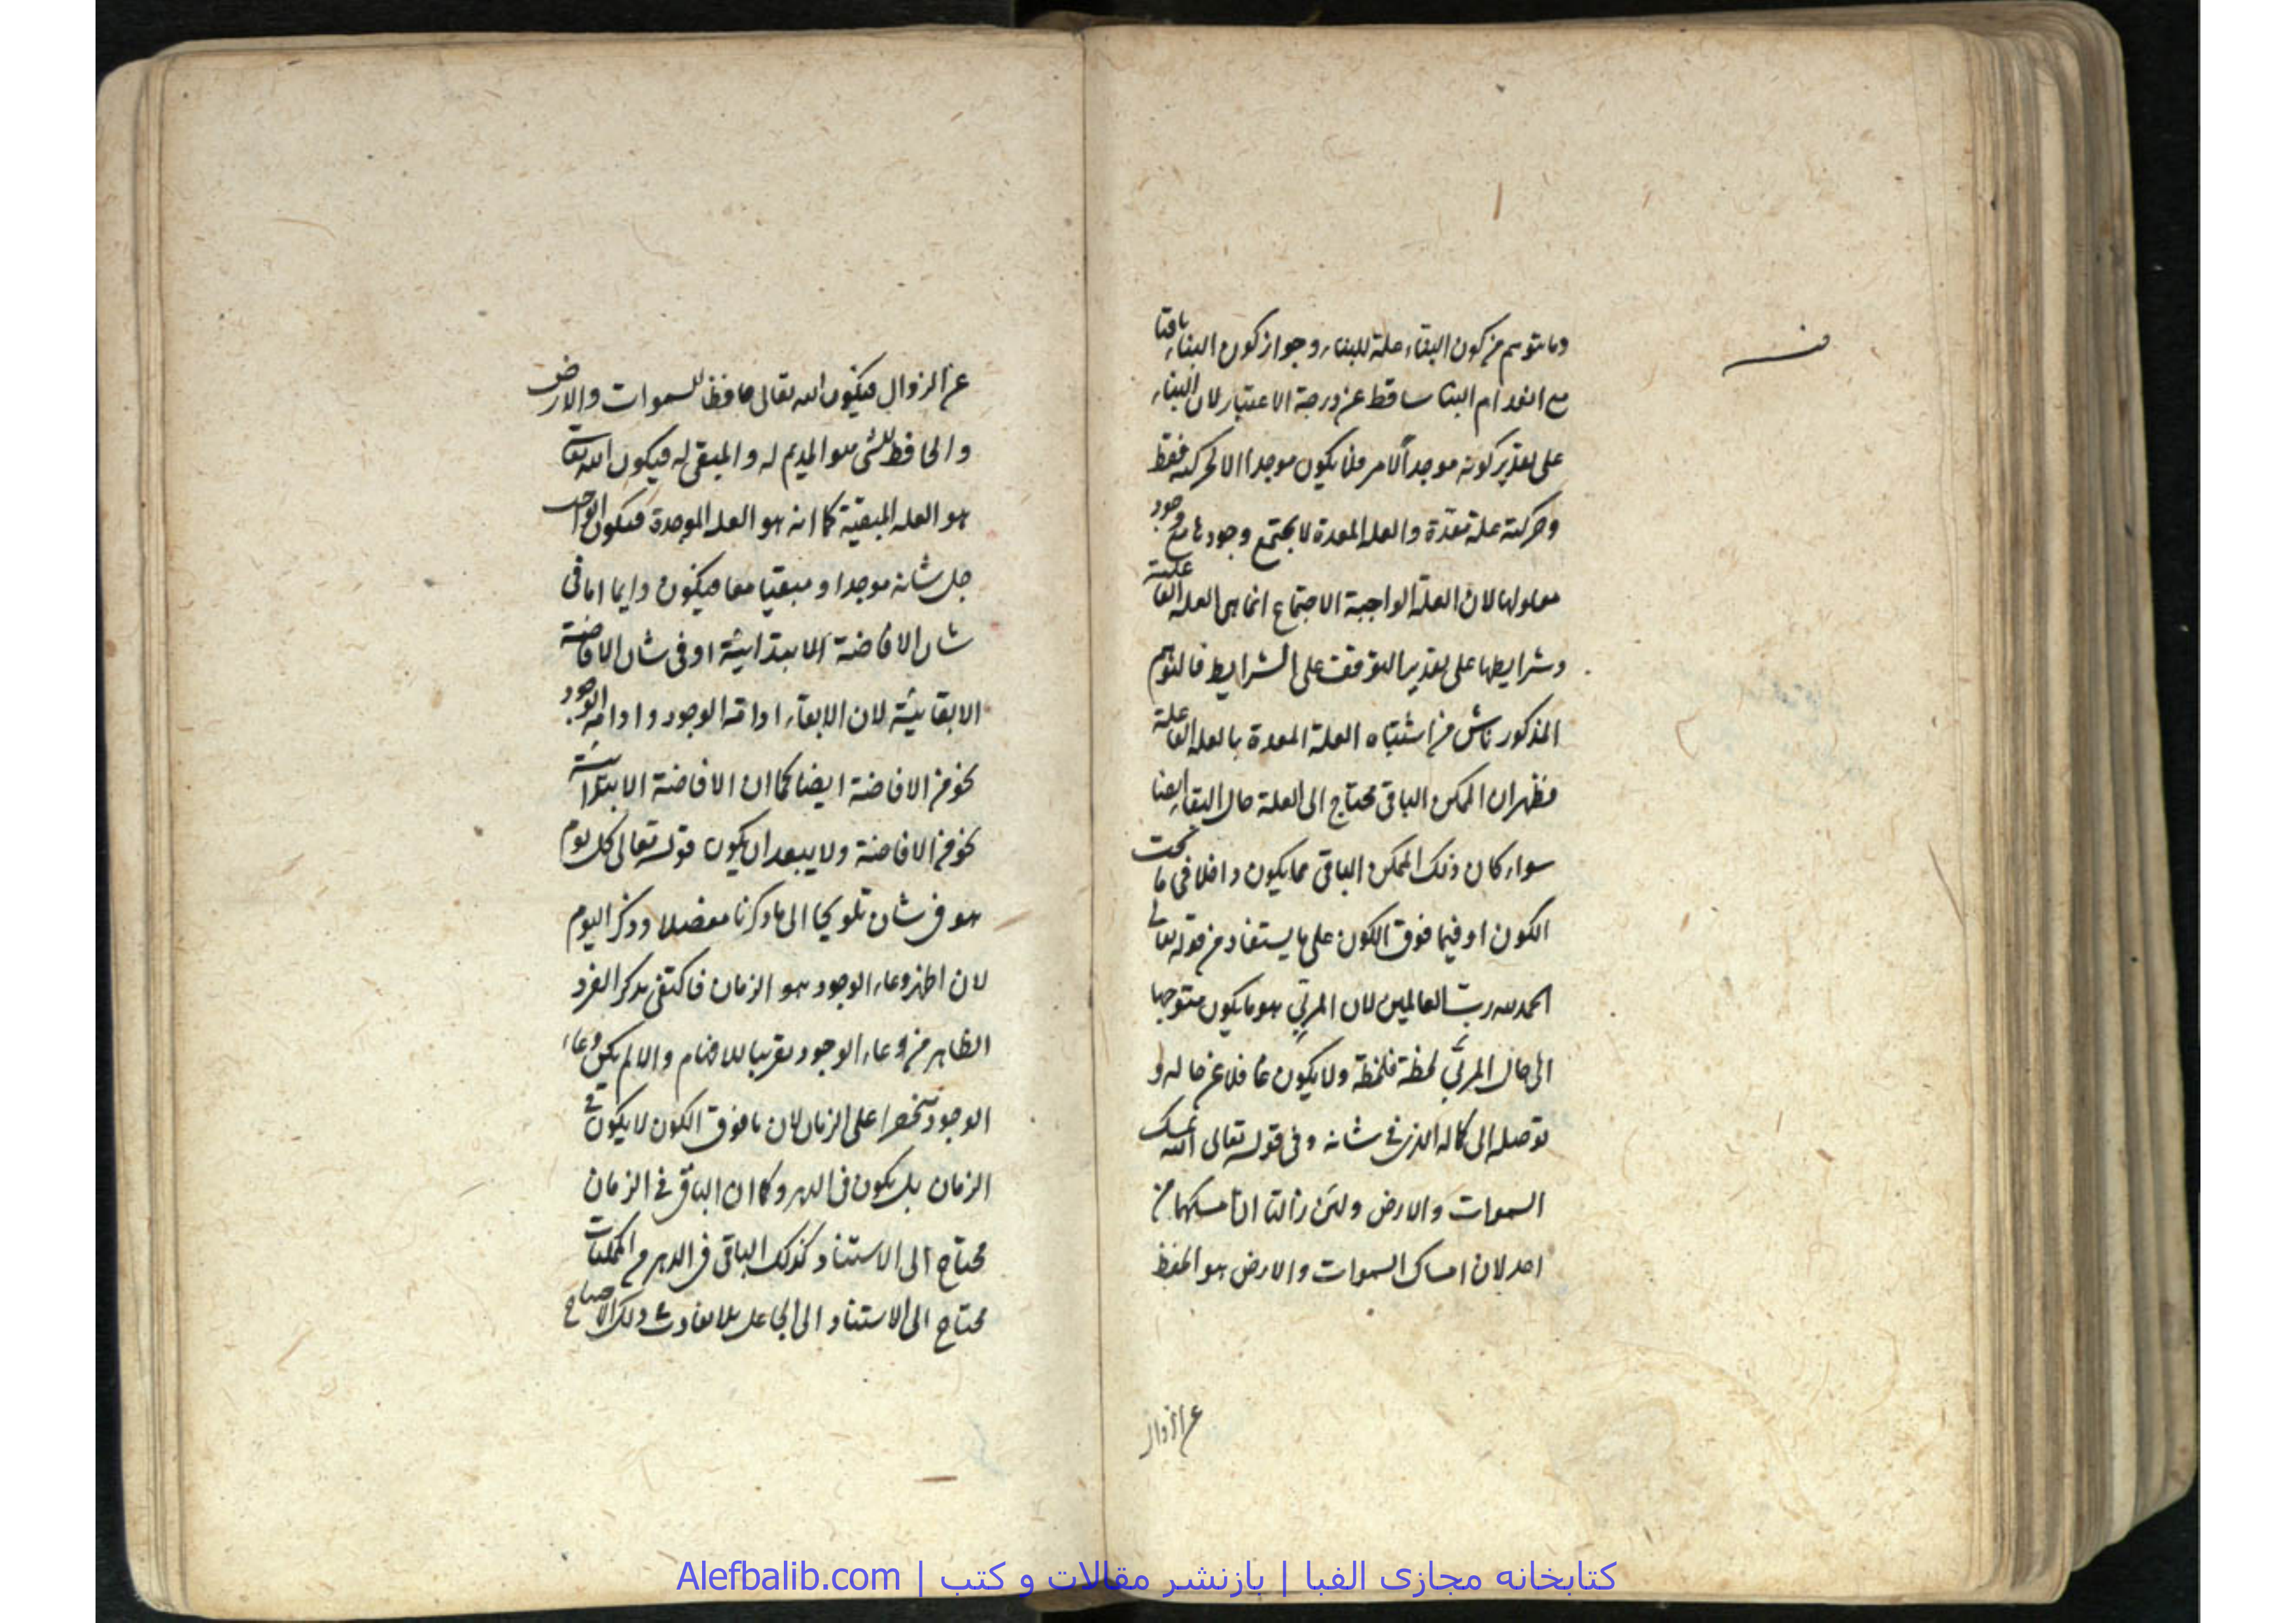 وما يتوهم من كون البنّاء علة للبناء وجواز كون البناء باقيا
مع انعدام البنا ساقط عن درجة الاعتبار لان البناء
على تقدير كونه موجداً لامر فلا يكون موجدا الا لحركته فقط
وحركته علة معدّة والعله المعدة لا يجتمع وجودها مع وجود
معلولها لان العلة الواجبة الاجتماع انما هى العله الفاعلية
وشرايطها على تقدير التوقف على الشرايط فالتوهم
المذكور ناش من اشتباه العلة المعدة بالعله الفاعلية
فظهر ان الممكن الباقى محتاج الى العلة حال البقاء ايضا
سواء كان ذلك الممكن الباقى مما يكون داخلا فى ما تحت
الكون او فيما فوق الكون على ما يستفاد من قوله تعالى
الحمد لله ربّ العالمين لان المربّي هو ما يكون متوجها
الى حال المربّى لحظة فلحظة ولا يكون غافلا عن حاله و
توصله الى كماله الذى فى شانه وفى قوله تعالى الله يمسك
السموات والارض ولئن زالتا ان امسكهما من
احد لان امساك السموات والارض هو الحفظ
عن الزوال
عن الزوال فيكون الله تعالى حافظا للسموات والارض
والحافظ للشئ هو المديم له والمبقى له فيكون الله تعا
هو العله المبقية كما انه هو العله الموجدة فيكون الواجب
جل شانه موجدا و مبقيا معا فيكون دايما اما فى
شان الافاضة الابتدائية او فى شان الافاضة
الابقائية لان الابقاء ادامة الوجود وادامة الوجود
نحو من الافاضة ايضا كما ان الافاضة الابتدائية
نحو من الافاضة ولا يبعد ان يكون قوله تعالى كل يوم
هو فى شان تلويحا الى ما ذكرنا مفصلا وذكر اليوم
لان اظهر وعاء الوجود هو الزمان فاكتفى بذكر الفرد
الظاهر من وعاء الوجود تقريبا للافهام والا لم يكن وعاء
الوجود منحصرا على الزمان لان ما فوق الكون لا يكون فى
الزمان بل يكون فى الدهر وكما ان الباقى فى الزمان
محتاج الى الاستناد كذلك الباقى فى الدهر من الممكنات
محتاج الى الاستناد الى الجاعل بلا تفاوت وذلك الاحتياج
کتابخانه مجازی الفبا | بازنشر مقالات و کتب | Alefbalib.com